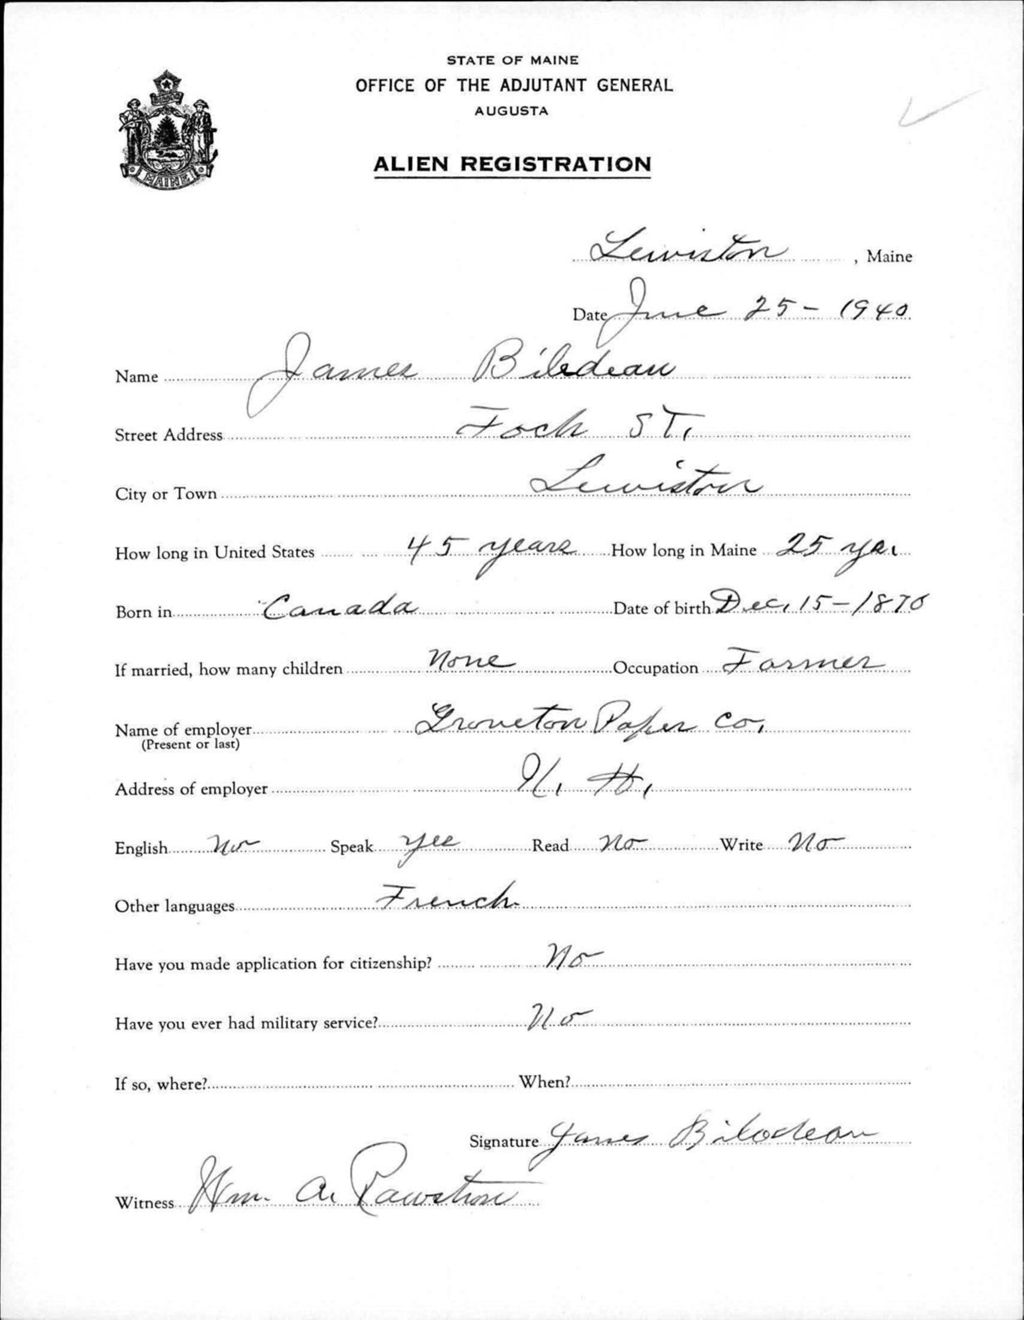 STATE OF MAINE
OFFICE OF THE ADJUTANT GENERAL
AUGUSTA
ALIEN REGISTRATION
MAINE
Lewiston, Maine
Date June 25-1940
Name James Biledeau
Street Address Foch ST.
City or Town Lewiston
How long in United States 45 years How long in Maine 25 yrs.
Born in Canada Date of birth Dec. 15-1870
If married, how many children None Occupation Farmer
Name of employer Groveton Paper Co.
(Present or last)
Address of employer N. H.
English No Speak Yes Read No Write No
Other languages French
Have you made application for citizenship? No
Have you ever had military service? No
If so, where? When?
Signature James Bilodeau
Witness Wm. A.